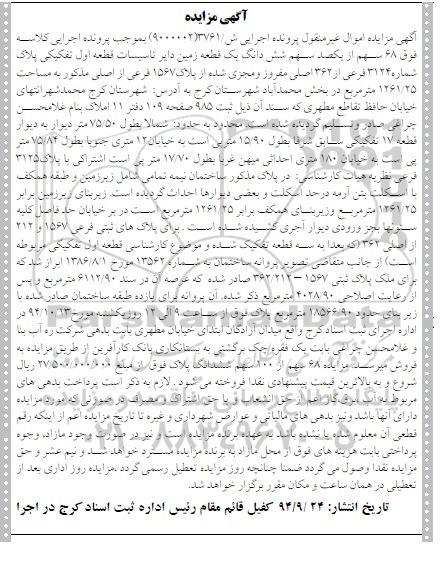 آگهی مزایده
آگهی مزایده اموال غیرمنقول پرونده اجرایی ش/۳۷۶۱(۹۰۰۰۰۰۲) بموجب پرونده اجرایی کلاسه
فوق ۶۸ سهم از یکصد سهم شش دانگ یک قطعه زمین دایر تاسیسات قطعه اول تفکیکی پلاک
شماره ۳۱۲۴ فرعی از ۳۶۲ اصلی مفروز ومجزی شده از پلاک ۱۵۶۷ فرعی از اصلی مذکور به مساحت
۱۲۶۱/۲۵ مترمربع در بخش محمدآباد شهرستان کرج به آدرس: شهرستان کرج محمدشهرانتهای
خیابان حافظ تقاطع مطهری که سند آن ذیل ثبت ۹۸۵ صفحه ۱۰۹ دفتر ۱۱ املاک بنام غلامحسن
چراغی صادر و تسلیم گردیده شده است. محدود به حدود: شمالا بطول ۷۵/۵۰ متر دیوار به دیوار
قطعه ۱۷ تفکیکی سابق شرقا بطول ۱۵/۹۰ متر پی است به خیابان ۱۲ متری جنوبا بطول ۷۵/۸۴ متر
پی است به خیابان ۱۸۰ متری احداثی میهن غربا بطول ۱۷/۷۰ متر پی است اشتراکی با پلاک ۳۱۲۵
فرعی نظریه هیات کارشناسی: در پلاک مذکور ساختمان نیمه تمامی شامل زیرزمین و طبقه همکف
با اسکلت بتن آرمه درحد اسکلت و بعضی دیوارها احداث گردیده است. زیربنای زیرزمین برابر
۱۲۶۱/۲۵ مترمربع وزیربنای همکف برابر ۱۲۶۱/۲۵ مترمربع است در بر خیابان حد فاصل کلیه
ستونها بجز ورودی دیوار آجری کشیده شده است . برای پلاک های ثبتی فرعی ۱۵۶۷ و ۲۱۲
از اصلی ۳۶۲ (که بعدا به سه قطعه تفکیک شده و موضوع کارشناسی قطعه اول تفکیکی مربوطه
است) از جانب متقاضی تصویر پروانه ساختمان به شماره ۱۳۵۶۲ مورخ ۱۳۸۶/۸/۱ ابراز شد که
برای ملک پلاک ثبتی ۱۵۶۷ – ۳۶۲/۲۱۲ صادر شده که عرصه آن در سند ۶۱۱۲/۹۰ مترمربع و پس
از رعایت اصلاحی ۴۰۲۸/۹۰ مترمربع ذکر شده. آن پروانه برای یازده طبقه ساختمان صادر شده با
زیر بنای حدود ۱۸۵۶۶/۹۰ مترمربع پلاک فوق از ساعت ۹ الی ۱۲ روزیکشنبه مورخ ۹۴/۱۰/۱۳ در
اداره اجرای ثبت اسناد کرج واقع میدان آزادگان ابتدای خیابان مطهری بابت بدهی شرکت ره آب بنا
و غلامحسن چراغی بابت یک فقره چک برگشتی به بستانکاری بانک کارآفرین از طریق مزایده به
فروش میرسد. مزایده ۶۸ سهم از ۱۰۰ سهم ششدانگ پلاک فوق از مبلغ ریال
شروع و به بالاترین قیمت پیشنهادی نقدا فروخته می شود . لازم به ذکر است پرداخت بدهی های
مربوط به آب، برق، گاز اعم از حق انشعاب و یا حق اشتراک و مصرف در صورتی که مورد مزایده
دارای آنها باشد ونیز بدهی های مالیاتی و عوارض شهرداری و غیره تا تاریخ مزایده اعم از اینکه رقم
قطعی آن معلوم شده یا نشده باشد به عهده برنده مزایده است و نیز در صورت وجود مازاد، وجوه
پرداختی بابت هزینه های فوق از محل مازاد به برنده مزایده مسترد خواهد شد و نیم عشر و حق
مزایده نقدا وصول می گردد ضمنا چنانچه روز مزایده تعطیل رسمی گردد ،مزایده روز اداری بعد از
تعطیلی در همان ساعت و مکان مقرر برگزار خواهد شد.
تاریخ انتشار: ۹۴/۹/۲۴ کفیل قائم مقام رئیس اداره ثبت اسناد کرج در اجرا